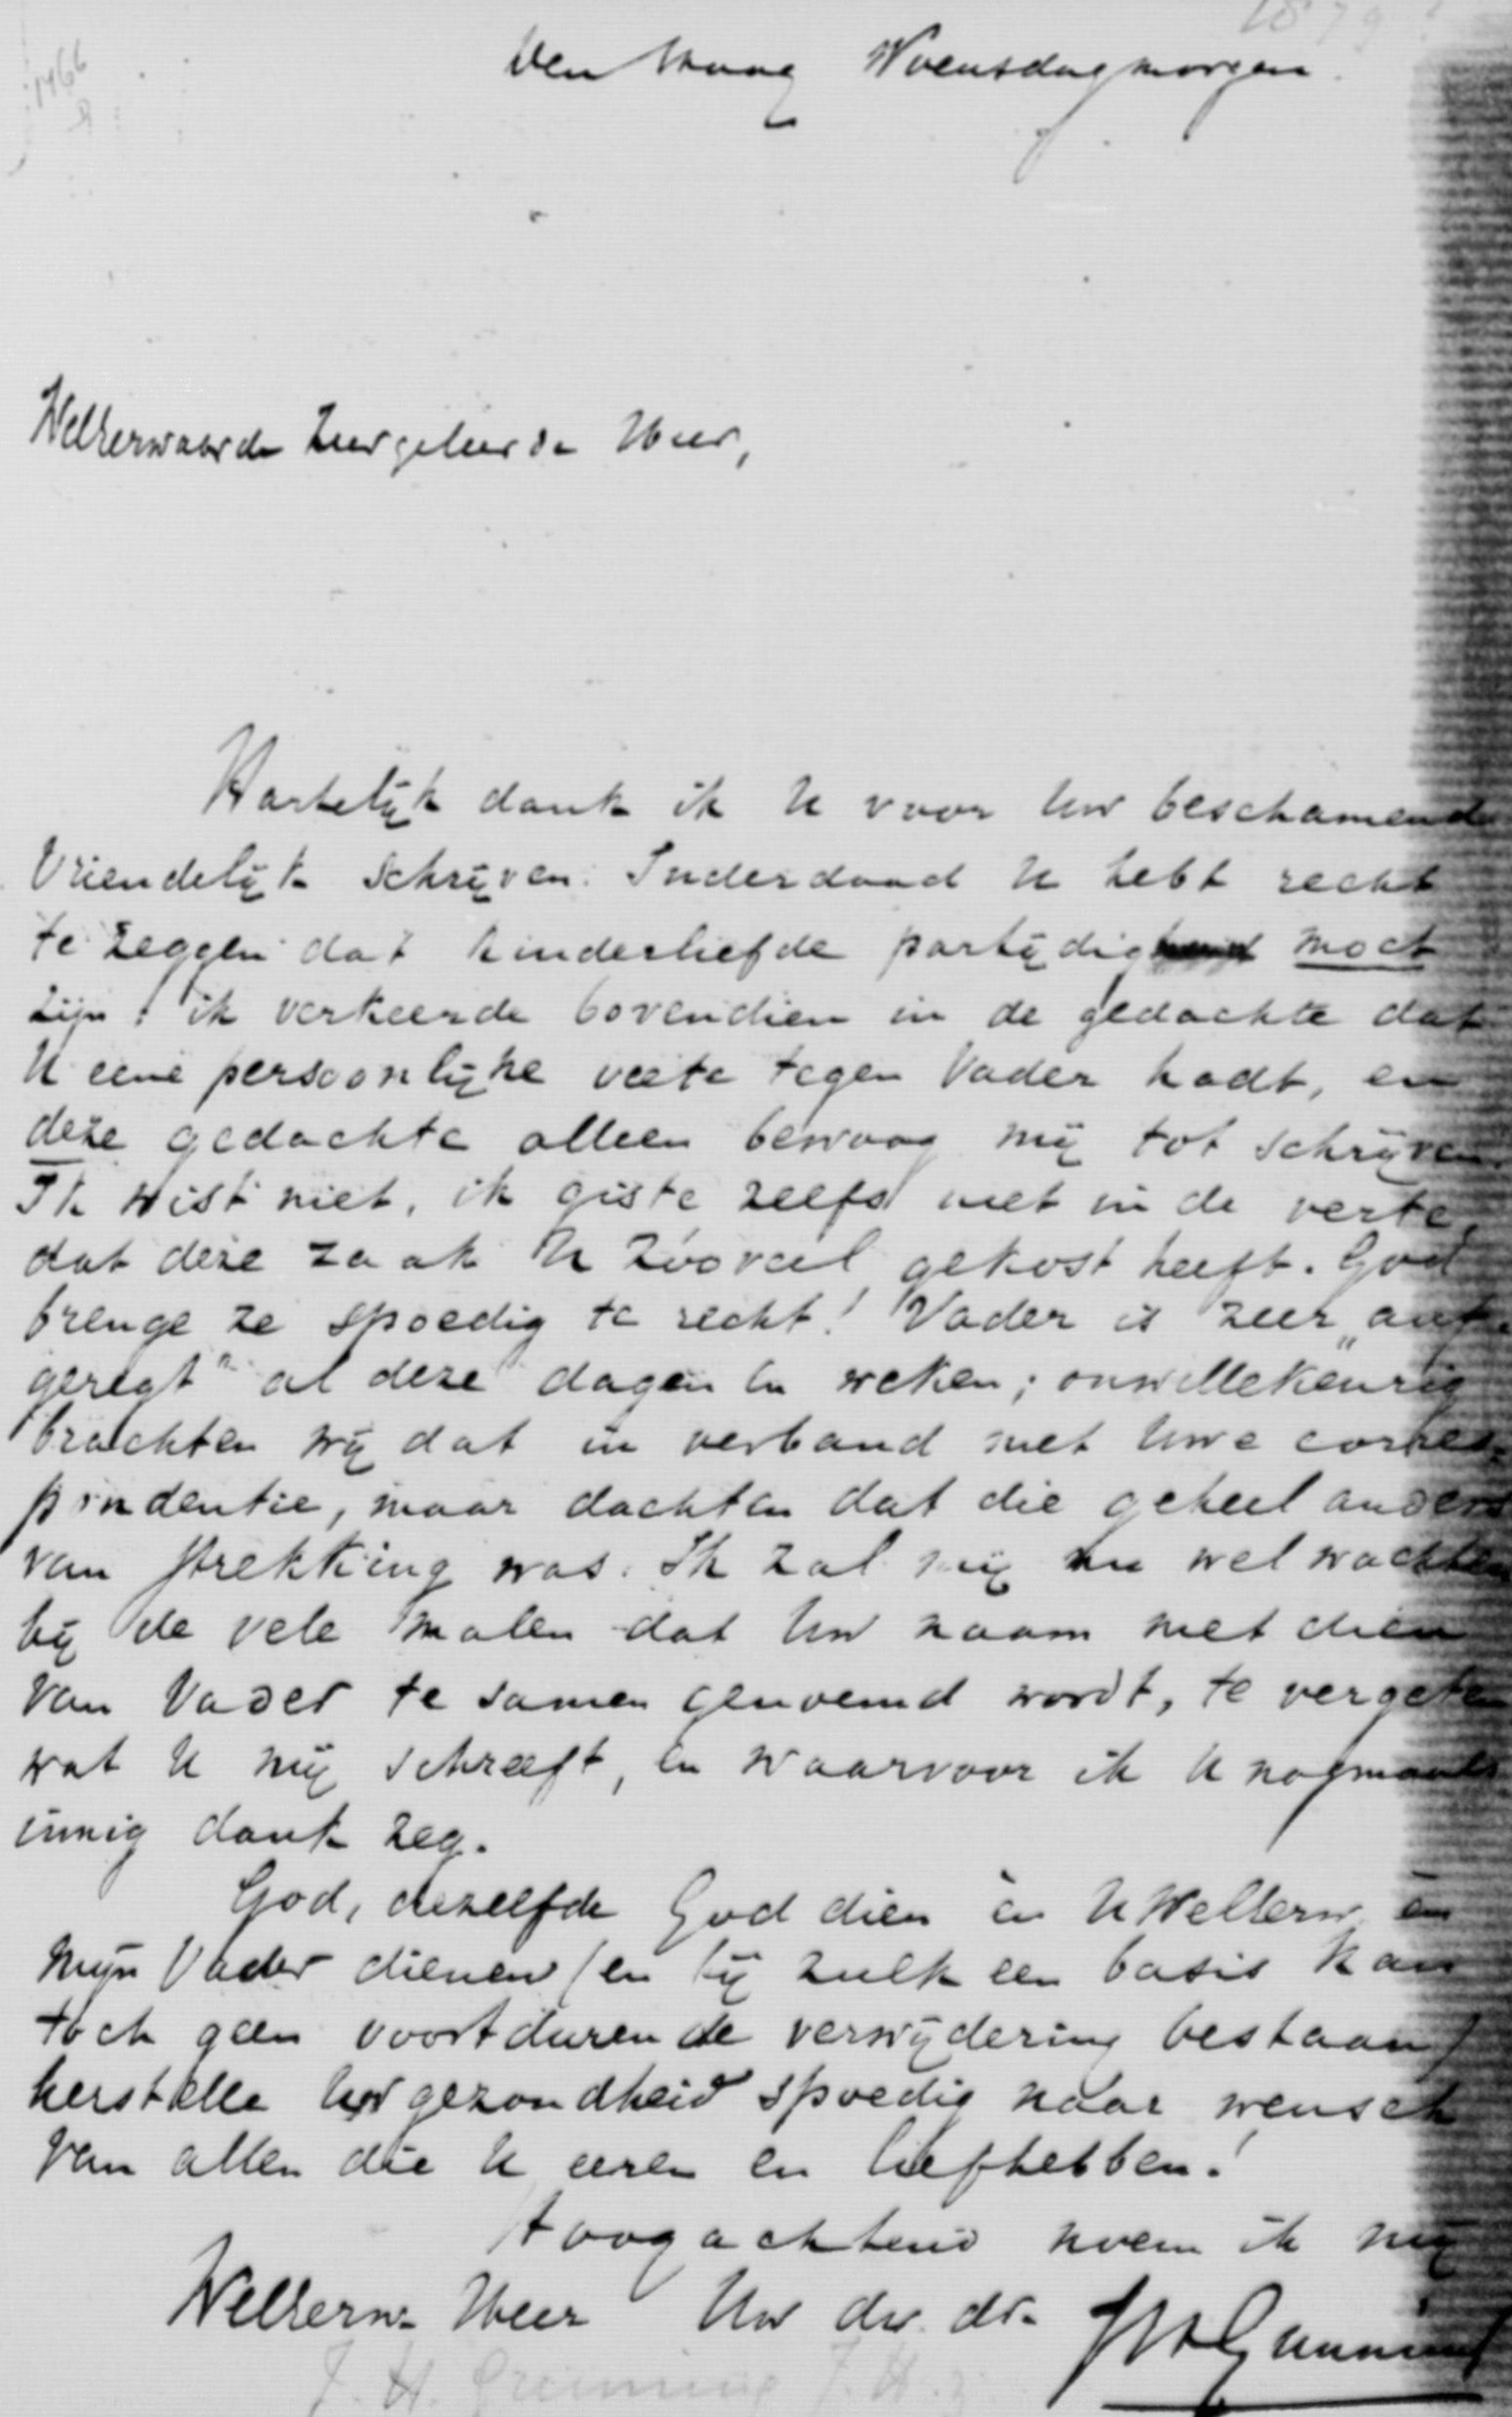 1879?
1466
Den Haag Woensdagmorgen.
WelEerwaarde Zeergeleerde Heer,
Hartelijk dank ik U voor Uw beschamende
vriendelijk schrijven. Inderdaad U hebt recht
te zeggen dat kinderliefde partijdig moet
zijn; ik verkeerde bovendien in de gedachte dat
U eene persoonlijke veete tegen Vader hadt, en
deze gedachte alleen bewoog mij tot schrijven.
Ik wist niet, ik giste zelfs niet in de verte,
dat deze zaak U zóóveel gekost heeft. God
brenge ze spoedig te recht! Vader is zeer „auf-
geregt" al deze dagen en weken; onwillekeurig
brachten wij dat in verband met Uwe corres-
pondentie, maar dachten dat die geheel anders
van strekking was. Ik zal mij nu wel wachten
bij de vele malen dat Uw naam met dien
van Vader te samen genoemd wordt, te vergeten
wat U mij schreeft, en waarvoor ik U nogmaals
innig dank zeg.
God, dezelfde God dien èn UWelEerw. èn
mijn Vader dienen (en bij zulk een basis kan
toch geen voortdurende verwijdering bestaan)
herstelle Uw gezondheid spoedig naar wensch
van allen die U eeren en liefhebben!
Hoogachtend noem ik mij
WelEerw. Heer Uw dw. dr. JHGunning
J. H. Gunning J.H.z